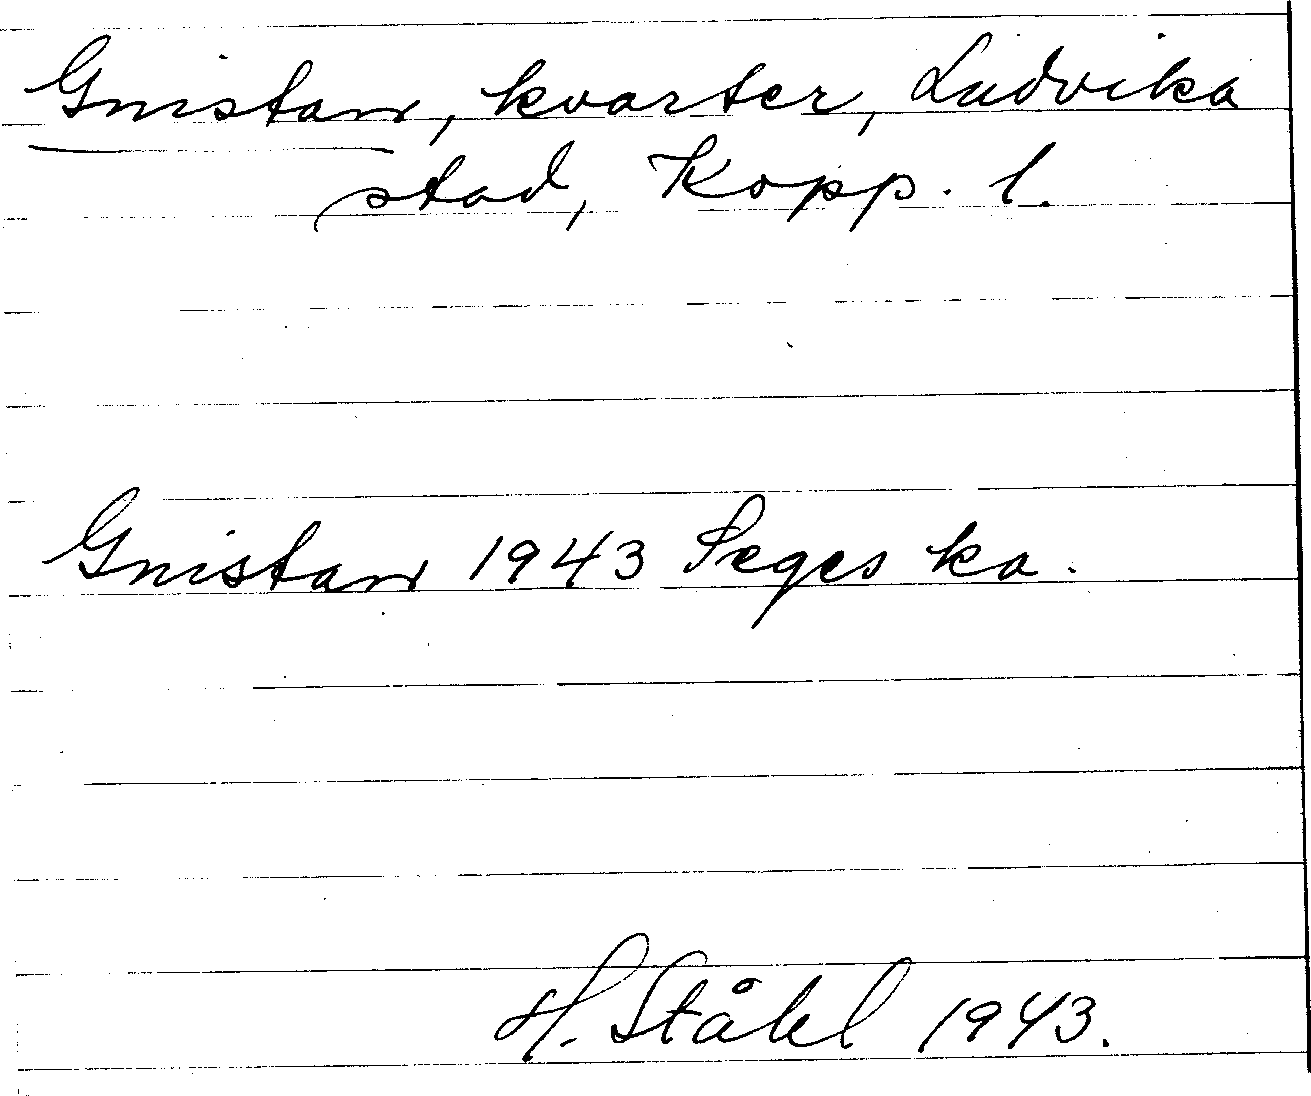 Gnistan, kvarter, Ludvika
stad, Kopp. l.
Gnistan 1943 Seges ka.
H. Ståhl 1943.